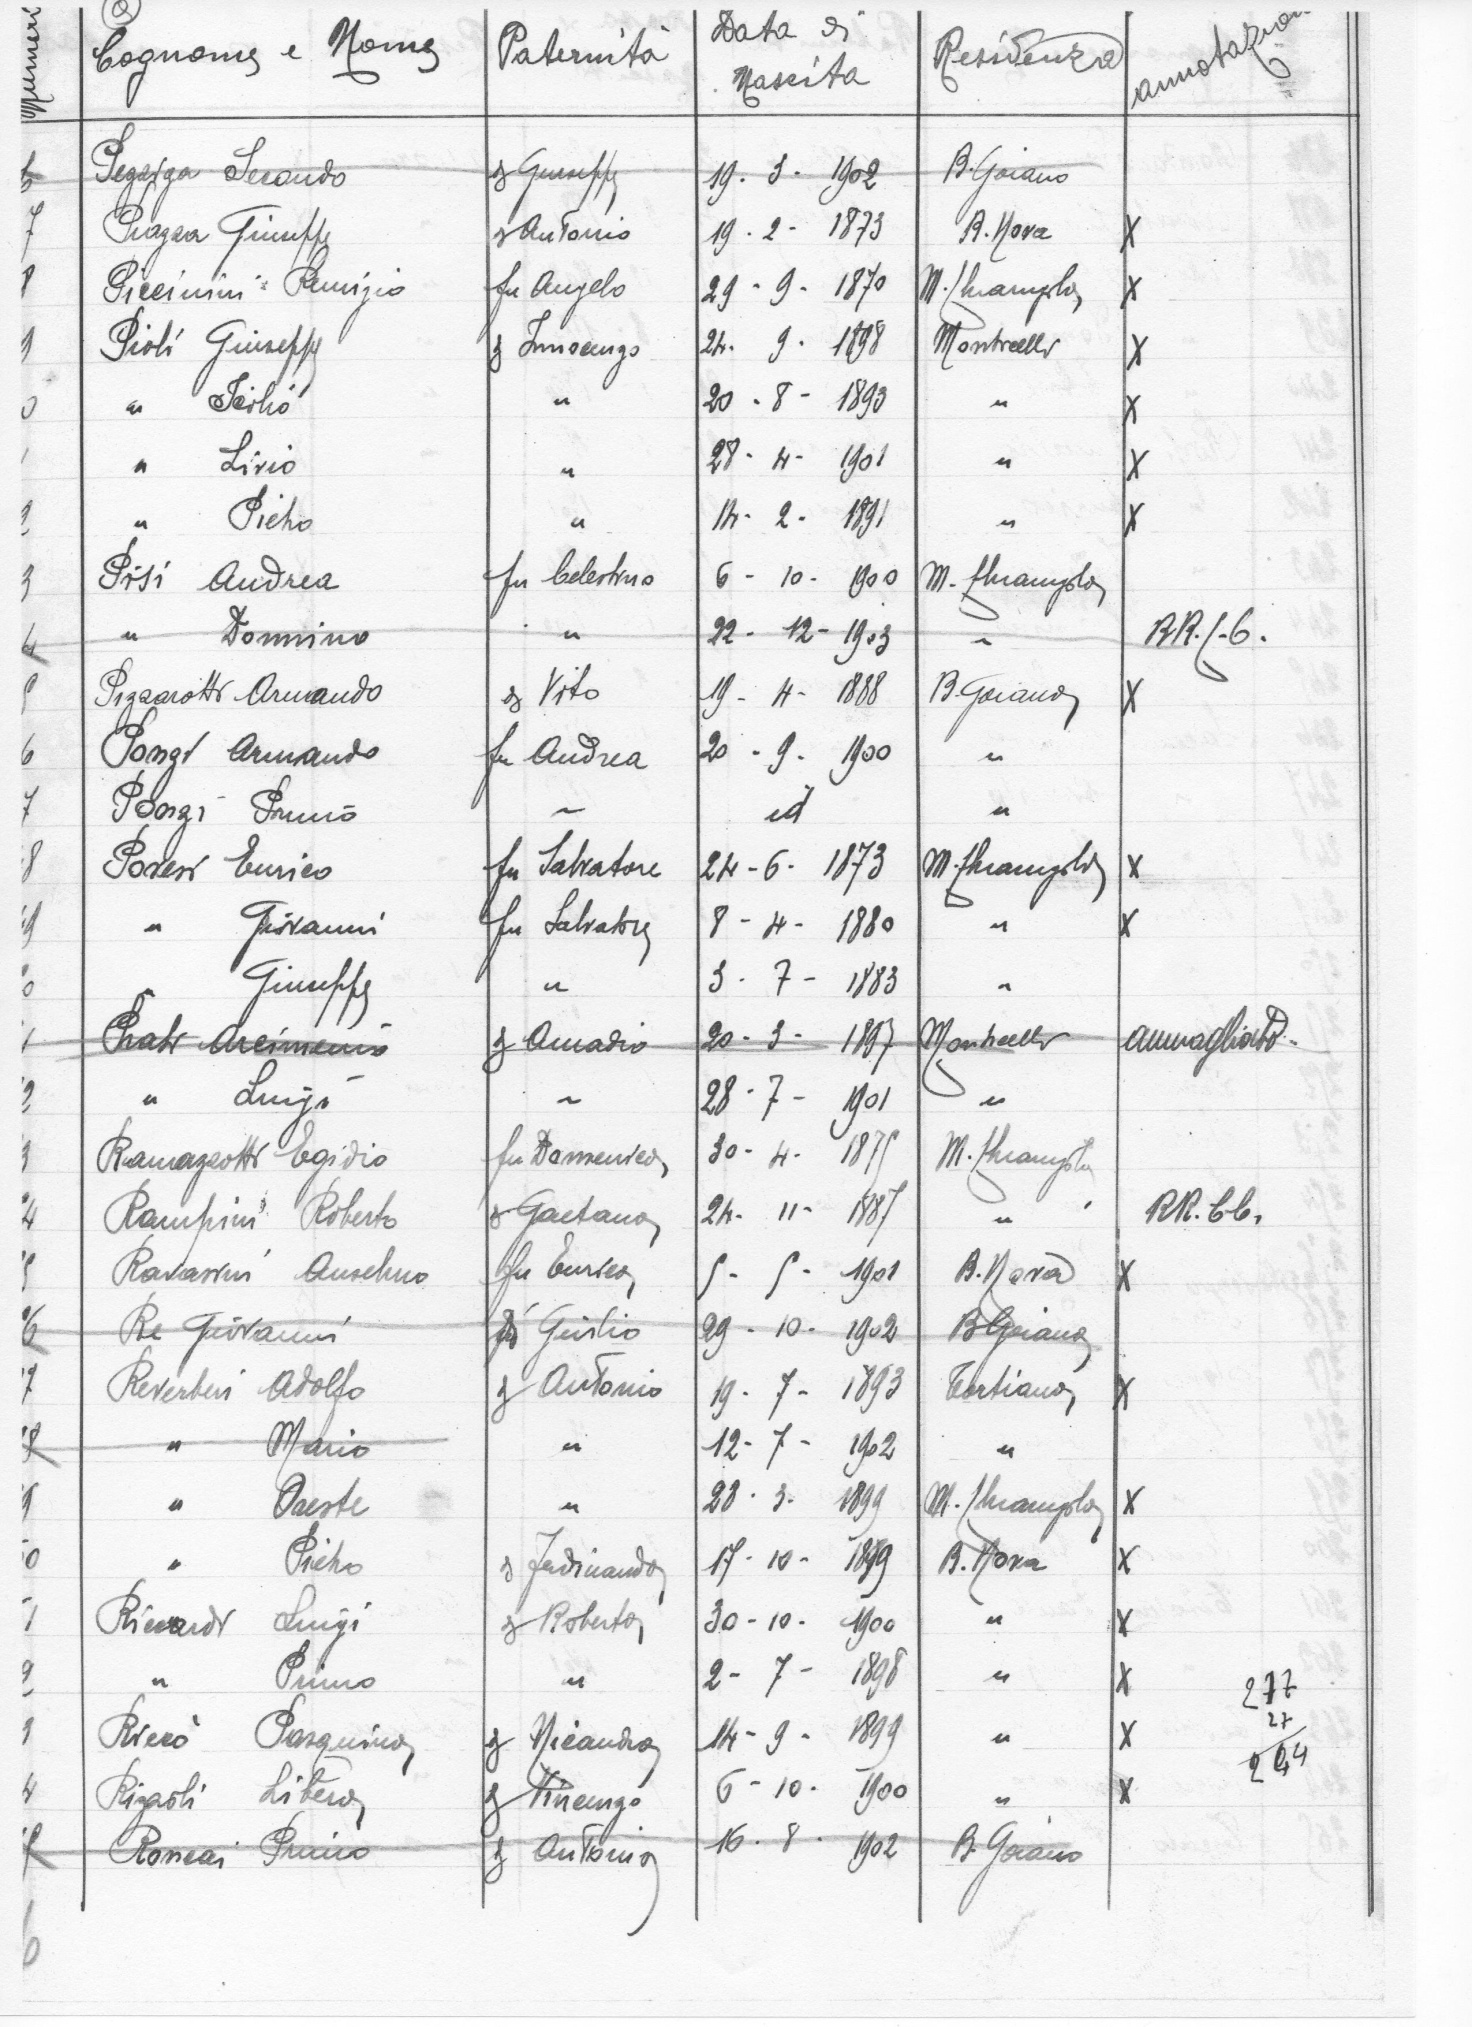 Numeri Cognome e Nome Paternità Data di Nascita Residenza annotazioni
Secondo di Giuseppe 19 - 3 - 1902 B. Goiano
7 Piazza Giuseppe di Antonio 19 - 2 - 1873 B. Nova X
8 Piccinini Remigio fu Angelo 29 - 9 - 1870 M. X
9 Pioli Giuseppe di Innocenzo 24 - 9 - 1898 Monticelli X
0 " Icilio " 20 - 8 - 1893 " X
" Livio " 28 - 4 - 1901 " X
2 " Pietro " 14 - 2 - 1891 " X
3 Pisi Andrea fu Celestino 6 - 10 - 1900 M.
4 " Donnino " 22 - 12 - 1903 "
Pizzarotti Armando di Vito 19 - 4 - 1888 B. Goiano X
6 Ponzi Armando fu Andrea 20 - 9 - 1900 "
7 Ponzi Primo " id "
8 Povesi Enrico fu Salvatore 24 - 6 - 1873 M. X
9 " Giovanni fu Salvatore 8 - 4 - 1880 " X
0 " Giuseppe " 3 - 7 - 1883 "
1 Prati di Amadio 20 - 3 - 1897 Monticelli ammogliato
2 " Luigi " 28 - 7 - 1901 "
3 Ramazzotti Egidio fu Domenico 30 - 4 - M.
4 Rampini Roberto di Gaetano 24 - 11 - 1887 " RR. CC.
5 Ravasini Anselmo fu Enrico 5 - 5 - 1901 B. Nova X
6 Re Giovanni di Giulio 29 - 10 - 1902 B. Goiano
7 Reverberi Adolfo di Antonio 19 - 7 - 1893 Tortiano X
8 " Mario " 12 - 7 - 1902 "
9 " Oreste " 28 - 3 - 1899 M. X
0 " Pietro di Ferdinando 17 - 10 - 1899 B. Nova X
1 Riccardi Luigi di Roberto 30 - 10 - 1900 " X
2 " Primo " 2 - 7 - 1898 " X
277
3 Riccò Pasquino di Nicandro 14 - 9 - 1899 " X
27
4 Rizzoli Libero di Vincenzo 6 - 10 - 1900 " X
Roncai Primo di Antonio 16 - 8 - 1902 B. Goiano